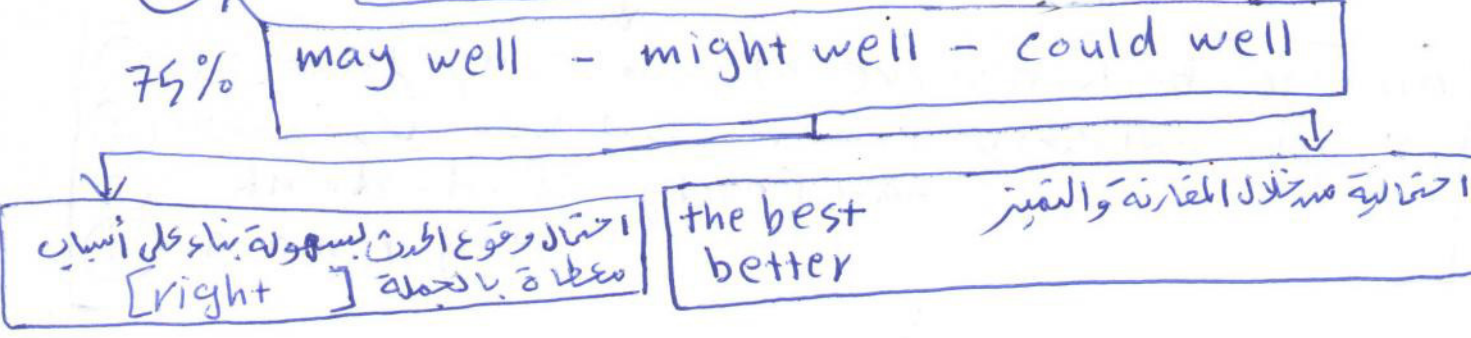 75%
may well - might well - could well
احتمال وقوع الحدث بسهولة بناء على أسباب
معطاة بالجملة [right ]
the best احتمالية من خلال المقارنة والتميز
better